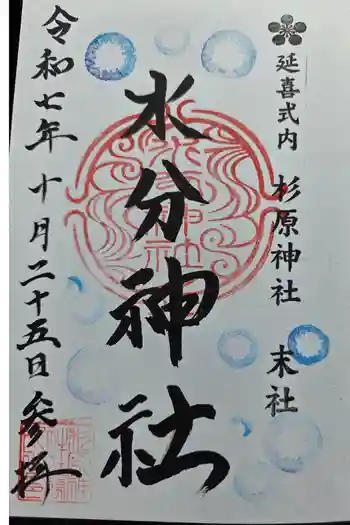 延喜式内 杉原神社 末社
水分神社
令和七年十月二十五日参拝